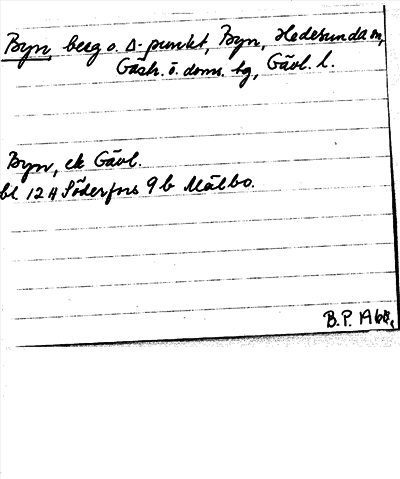 Byn, berg o. Δ-punkt, Byn, Hedesunda sn,
Gästr. ö. doms. tg, Gävl. l.
Byn, ek Gävl.
bl 12 H Söderfors 9 b Mälbo.
B.P. 1968.